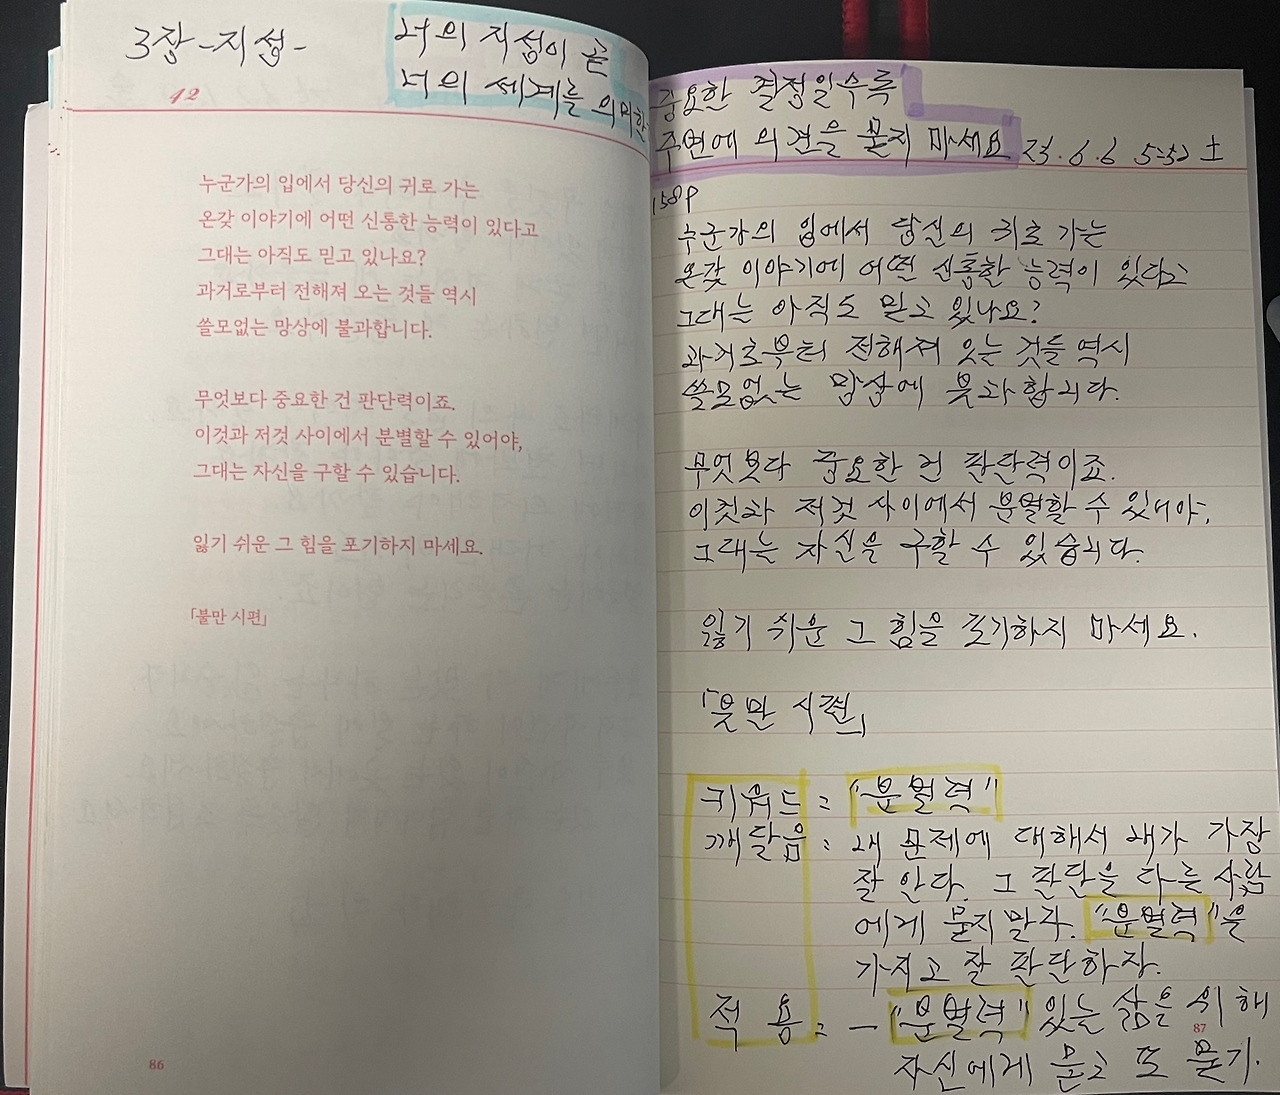 3장 -지성-
너의 지성이 곧
너의 세계를 의미한
42
누군가의 입에서 당신의 귀로 가는
온갖 이야기에 어떤 신통한 능력이 있다고
그대는 아직도 믿고 있나요?
과거로부터 전해져 오는 것들 역시
쓸모없는 망상에 불과합니다.
무엇보다 중요한 건 판단력이죠.
이것과 저것 사이에서 분별할 수 있어야,
그대는 자신을 구할 수 있습니다.
잃기 쉬운 그 힘을 포기하지 마세요.
「불만 시편」
86
중요한 결정일수록
주변에 의견을 묻지 마세요 25.6.6 5:52 土
158P
누군가의 입에서 당신의 귀로 가는
온갖 이야기에 어떤 신통한 능력이 있다고
그대는 아직도 믿고 있나요?
과거로부터 전해져 있는 것들 역시
쓸모없는 망상에 불과합니다.
무엇보다 중요한 건 판단력이죠.
이것과 저것 사이에서 분별할 수 있어야,
그대는 자신을 구할 수 있습니다.
잃기 쉬운 그 힘을 포기하지 마세요.
「불만 시편」
키워드 : "분별력"
깨달음 : 내 문제에 대해서 내가 가장
잘 안다. 그 판단을 다른 사람
에게 묻지말자. "분별력"을
가지고 잘 판단하자.
적용 : - "분별력" 있는 삶을 위해
87
자신에게 묻고 또 묻기.